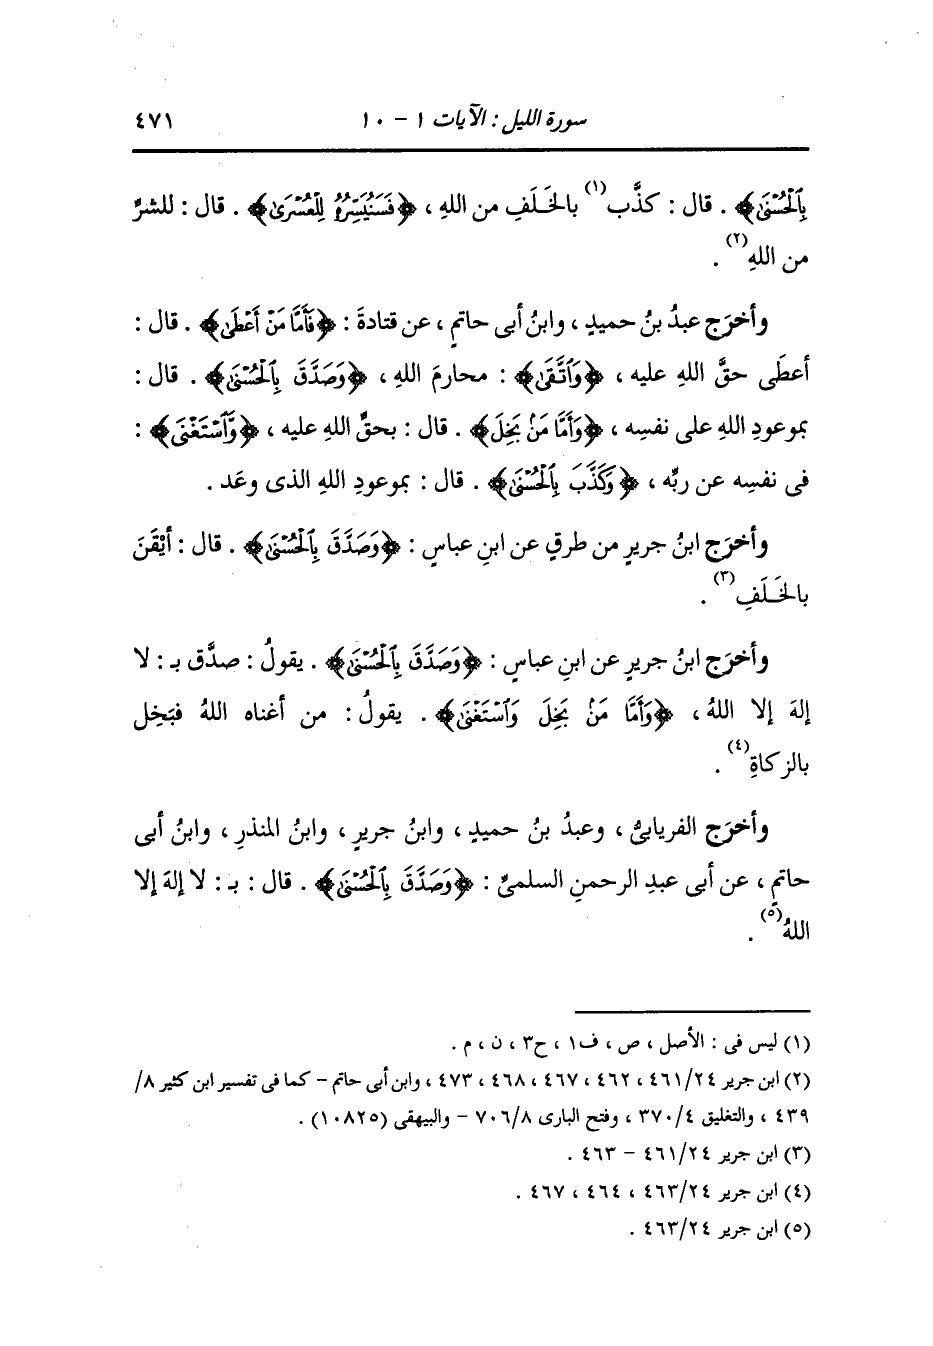 سورة الليل : الآيات ١ - ١٠ ٤٧١
بِٱلْحُسْنَىٰ﴾ . قال : كذَّب(١) بالخَلَفِ من اللهِ ، ﴿فَسَنُيَسِّرُهُۥ لِلْعُسْرَىٰ﴾ . قال : للشرِّ
من اللهِ(٢) .
وأخرَج عبدُ بنُ حميدٍ ، وابنُ أبى حاتمٍ ، عن قتادةَ : ﴿فَأَمَّا مَنْ أَعْطَىٰ﴾ . قال :
أعطَى حقَّ اللهِ عليه ، ﴿وَٱتَّقَىٰ﴾ : محارمَ اللهِ ، ﴿وَصَدَّقَ بِٱلْحُسْنَىٰ﴾ . قال :
بموعودِ اللهِ على نفسِه ، ﴿وَأَمَّا مَنۢ بَخِلَ﴾ . قال : بحقِّ اللهِ عليه ، ﴿وَٱسْتَغْنَىٰ﴾ :
فى نفسِه عن ربِّه ، ﴿وَكَذَّبَ بِٱلْحُسْنَىٰ﴾ . قال : بموعودِ اللهِ الذى وعَد .
وأخرَج ابنُ جريرٍ من طرقٍ عن ابنِ عباسٍ : ﴿وَصَدَّقَ بِٱلْحُسْنَىٰ﴾ . قال : أيْقَنَ
بالخَلَفِ(٣) .
وأخرَج ابنُ جريرٍ عن ابنِ عباسٍ : ﴿وَصَدَّقَ بِٱلْحُسْنَىٰ﴾ . يقولُ : صدَّق بـ : لا
إلهَ إلا اللهُ ، ﴿وَأَمَّا مَنۢ بَخِلَ وَٱسْتَغْنَىٰ﴾ . يقولُ : من أغناه اللهُ فبَخِل
بالزكاةِ(٤) .
وأخرَج الفريابىُّ ، وعبدُ بنُ حميدٍ ، وابنُ جريرٍ ، وابنُ المنذرِ ، وابنُ أبى
حاتمٍ ، عن أبى عبدِ الرحمنِ السلمىِّ : ﴿وَصَدَّقَ بِٱلْحُسْنَىٰ﴾ . قال : بـ : لا إلهَ إلا
اللهُ(٥) .
(١) ليس فى : الأصل ، ص ، ف١ ، ح٣ ، ن ، م .
(٢) ابن جرير ٤٦١/٢٤ ، ٤٦٢ ، ٤٦٧ ، ٤٦٨ ، ٤٧٣ ، وابن أبى حاتم - كما فى تفسير ابن كثير ٨/
٤٣٩ ، والتغليق ٣٧٠/٤ ، وفتح البارى ٧٠٦/٨ - والبيهقى (١٠٨٢٥) .
(٣) ابن جرير ٤٦١/٢٤ - ٤٦٣ .
(٤) ابن جرير ٤٦٣/٢٤ ، ٤٦٤ ، ٤٦٧ .
(٥) ابن جرير ٤٦٣/٢٤ .